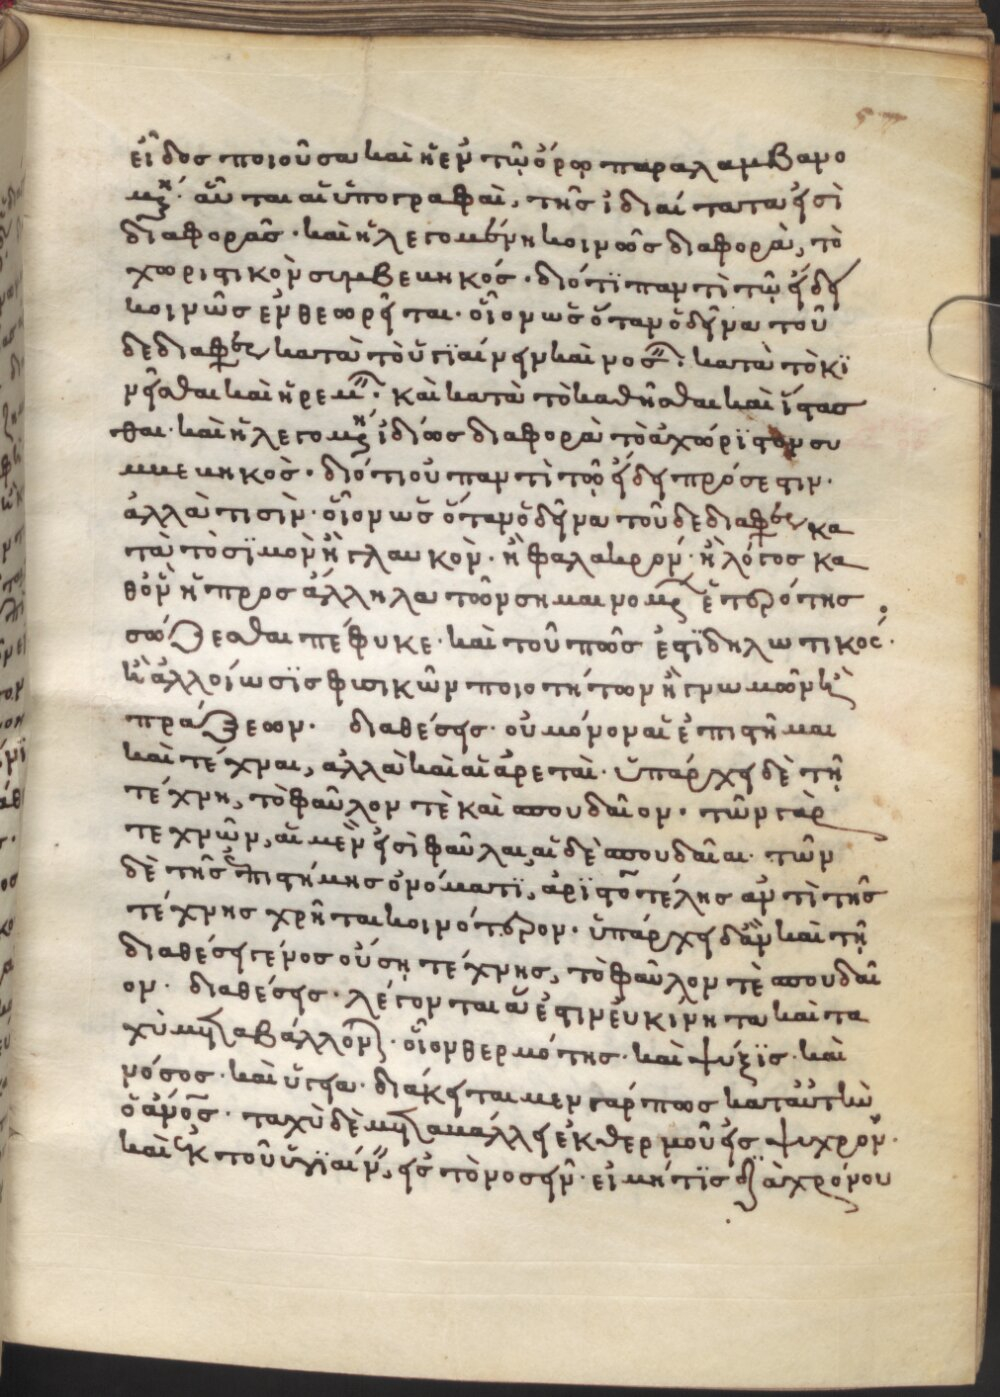 εἶδος ποιοῦσα καὶ ἡ ἐν τῷ ὅρῳ παραλαμβανο
μένη. αὗται αἱ ὑπογραφαὶ, τῆς ἰδιαίτατα εἰσὶ
διαφορᾶς. καὶ ἡ λεγομένη κοινῶς διαφορὰ, τὸ
χωριστικὸν συμβεκηκός. διότι παντὶ τῷ εἴδει
κοινῶς ἐνθεωρεῖται. οἷον ὡς ὅταν ὁ δεῖνα τοῦ
δε διαφέρει κατὰ τὸ ὑγιαίνειν καὶ νοσεῖν. κατὰ τὸ κι
νεῖσθαι καὶ ἠρεμεῖν. καὶ κατὰ τὸ καθῆσθαι καὶ ἵστασ
θαι. καὶ ἡ λεγομένη ἰδίως διαφορὰ τὸ ἀχώριστον συ
μμεκηκὸς. διότι οὐ παντὶ τῷ εἴδει πρόσεστιν.
ἀλλὰ τισὶν. οἷον ὡς ὅταν ὁ δεῖνα τοῦ δε διαφέρει κα
τὰ τὸ σιμὸν ἢ γλαυκὸν. ἢ φαλακρόν. ἢ λόγος κα
θ' ὃν ἡ προς ἄλληλα τῶν σημαινομένων ἑτερότης
σώζεσθαι πέφυκε. καὶ τοῦ πῶς ἐστὶ δηλωτικός.
καὶ ἀλλοίωσις φυσικῶν ποιοτήτων ἢ γνωμῶν καὶ
πράξεων. διαθέσεις. οὐ μόνον αἱ ἐπιστῆμαι
καὶ τέχναι, ἀλλὰ καὶ αἱ ἀρεταὶ. ὑπάρχει δὲ τῇ
τέχνῃ, τὸ φαῦλον τὲ καὶ σπουδαῖον. τῶν γὰρ
τεχνῶν, αἱ μὲν εἰσὶ φαῦλαι, αἱ δὲ σπουδαῖαι. τῶν
δὲ τῆς ἐπιστήμης ὀνόματι, ἀριστοτέλης ἀντὶ τῆς
τέχνης χρῆται κοινότερον. ὑπάρχει δ' ἂν καὶ τῇ
διαθέσει γένος οὔσῃ τέχνης, τὸ φαῦλον τὲ σπουδαῖ
ον. διαθέσεις. λέγονται ἅ ἐστιν εὐκίνητα καὶ τα
χὺ μεταβάλλοντα. οἷον θερμότης. καὶ ψύξις. καὶ
νόσος. καὶ ὑγεία. διάκειται μεν γάρ πως κατ' αὐτὴν
ὁ ἄνθρωπος. ταχὺ δὲ μεταβάλλει ἐκ θερμοῦ εἰς ψυχρὸν.
καὶ ἐκ τοῦ ὑγιαίνειν, εἰς τὸ νοσεῖν. εἰ μή τις διὰ χρόνου